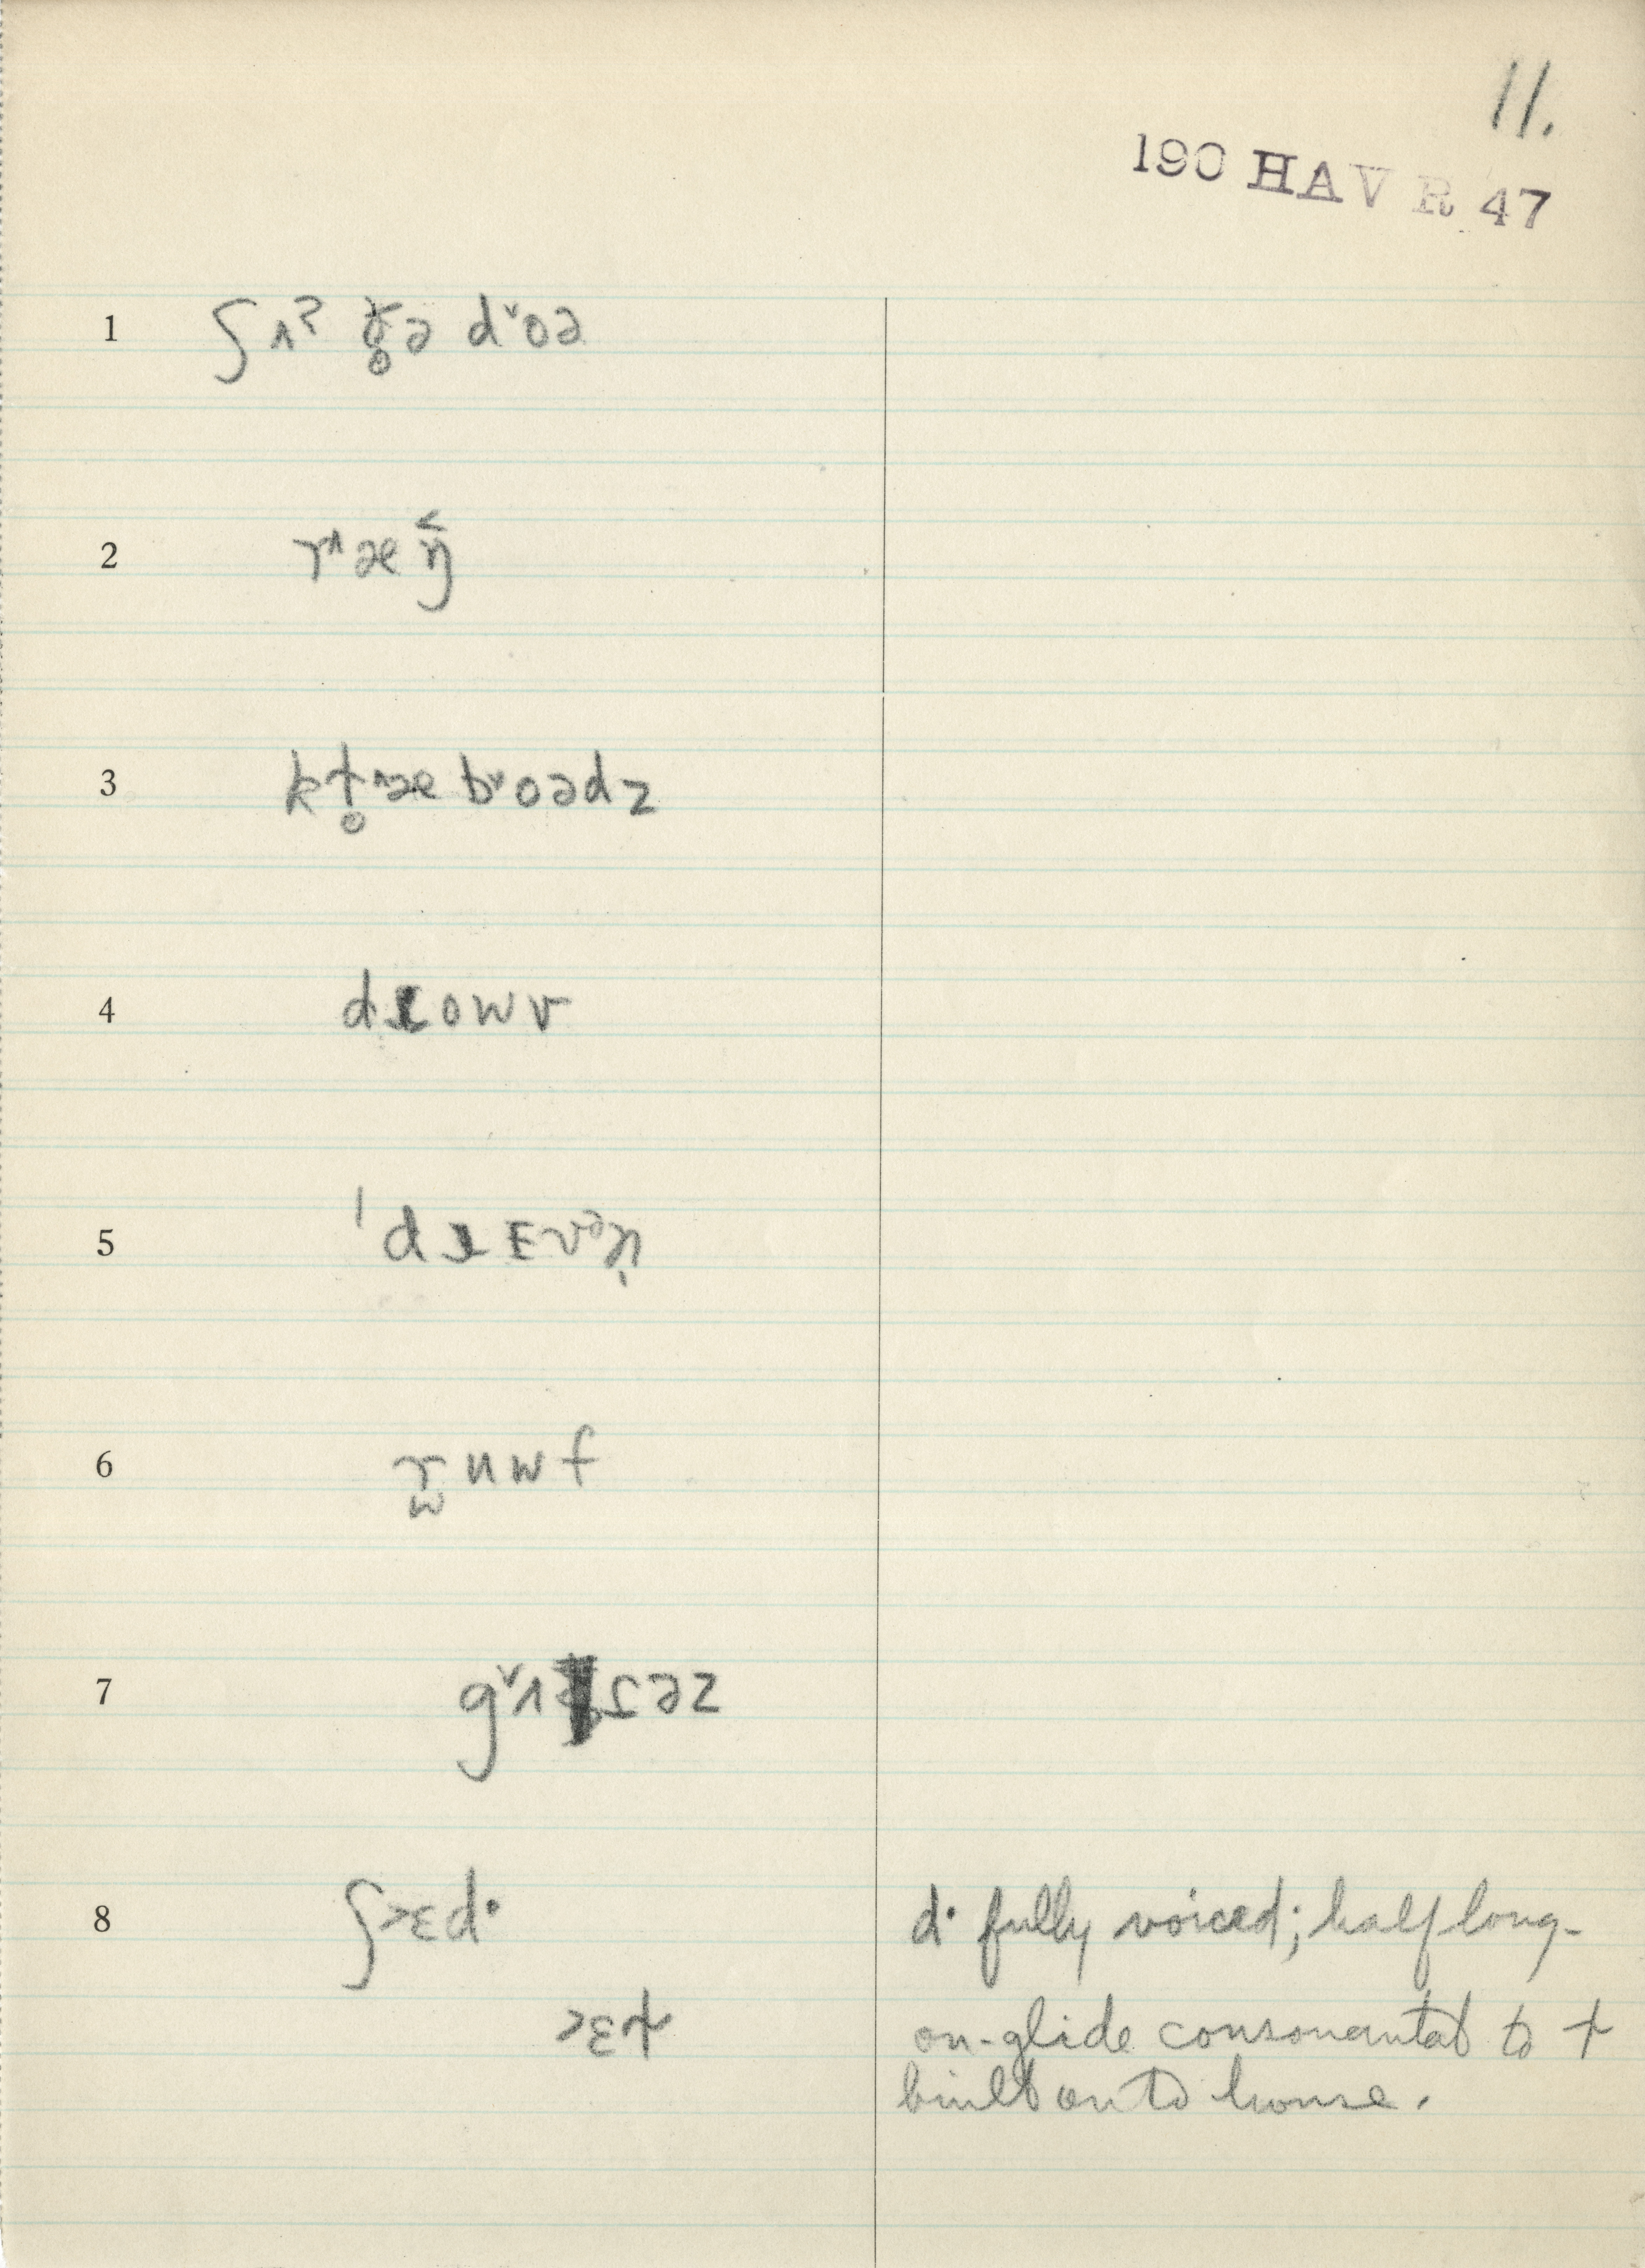 11.
190 HAV R 47
1 ʃʌˀ ð̥ə dˇoə
2 r^æŋ̌
3 kɫ̥^æ bˇoədz
4 dɹowv
5 ˈdɹɛvᵊn̩
6 r̫uwf
7 gˇʌɾəz
8 ʃ>ɛd·
d· fully voiced; half long-
>ɛɫ
on-glide consonantal to ɫ
built on to house.